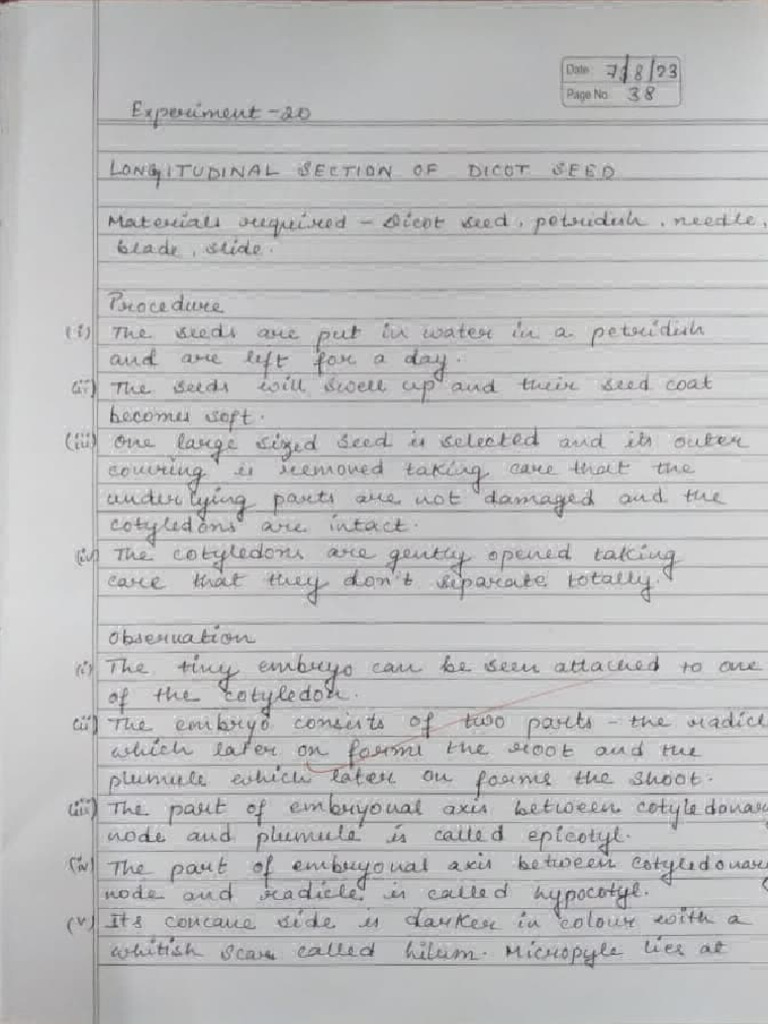 Date 7/8/23
Page No. 38
Experiment - 20
LONGITUDINAL SECTION OF DICOT SEED
Materials required - Dicot seed, petridish, needle,
blade, slide.
Procedure
(i) The seeds are put in water in a petridish
and are left for a day.
(ii) The seeds will swell up and their seed coat
becomes soft.
(iii) One large sized seed is selected and its outer
covering is removed taking care that the
underlying parts are not damaged and the
cotyledons are intact.
(iv) The cotyledons are gently opened taking
care that they don't separate totally.
Observation
(i) The tiny embryo can be seen attached to one
of the cotyledon.
(ii) The embryo consists of two parts - the radicle
which later on forms the root and the
plumule which later on forms the shoot.
(iii) The part of embryonal axis between cotyledonary
node and plumule is called epicotyl.
(iv) The part of embryonal axis between cotyledonary
node and radicle is called hypocotyl.
(v) Its concave side is darker in colour with a
whitish scar called hilum. Micropyle lies at